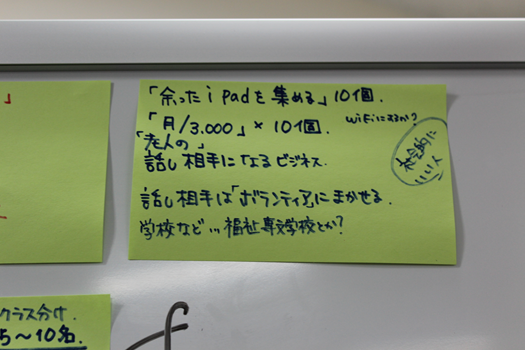 」
「余ったiPadを集める」10個.
「月/3.000」×10個. WiFiにするか?
「老人の」
話し相手になるビジネス.
社会的に
いい人
話し相手は「ボランティア」にまかせる.
学校など… 福祉専門学校とか?
クラス分け.
5〜10名.